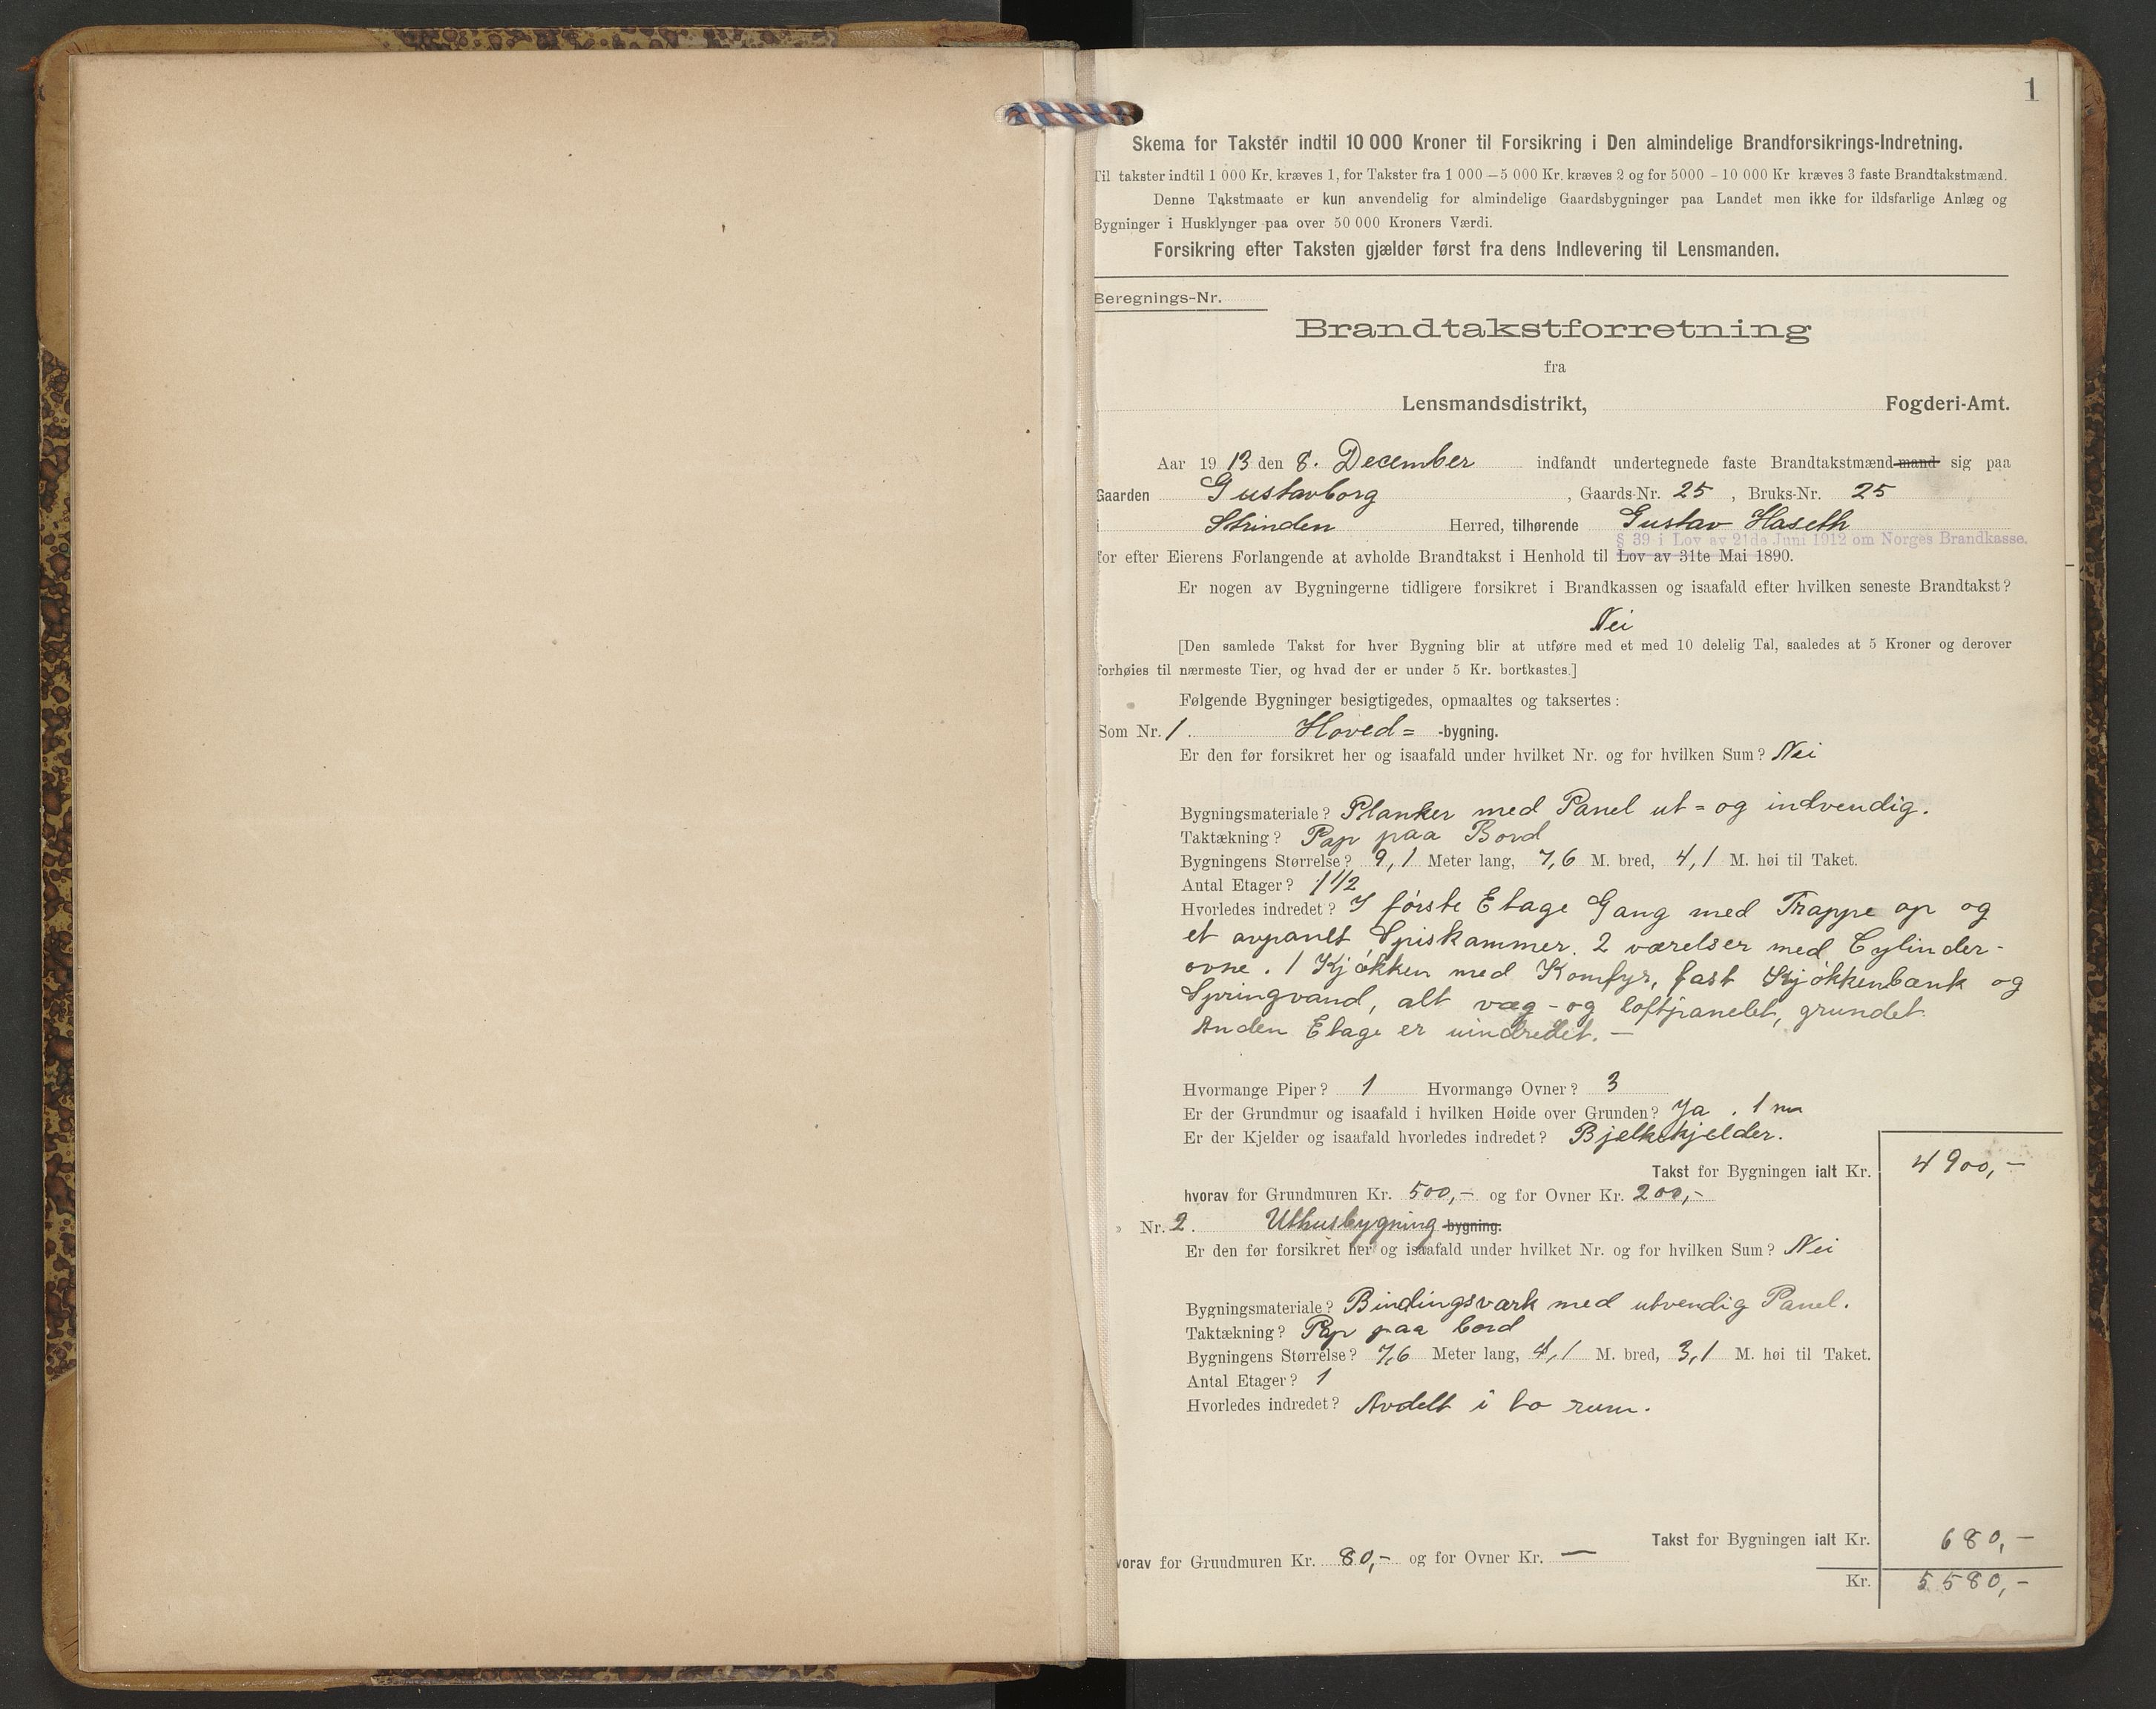 1
Skema for Takster indtil 10 000 Kroner til Forsikring i Den almindelige Brandforsikrings-Indretning.
Til takster indtil 1 000 Kr. kræves 1, for Takster fra 1 000 – 5 000 Kr. kræves 2 og for 5000 – 10 000 Kr kræves 3 faste Brandtakstmænd.
Denne Takstmaate er kun anvendelig for almindelige Gaardsbygninger paa Landet men ikke for ildsfarlige Anlæg og
Bygninger i Husklynger paa over 50 000 Kroners Værdi.
Forsikring efter Taksten gjælder først fra dens Indlevering til Lensmanden.
Beregnings-Nr.
Brandtakstforretning
fra
Lensmandsdistrikt, Fogderi-Amt.
Aar 1913 den 8. December indfandt undertegnede faste Brandtakstmænd mand sig paa
Gaarden Gustavborg, Gaards-Nr. 25, Bruks-Nr. 25
i Strinden Herred, tilhørende Gustav Haseth
§ 39 i Lov av 21de Juni 1912 om Norges Brandkasse.
for efter Eierens Forlangende at avholde Brandtakst i Henhold til Lov av 31te Mai 1890.
Er nogen av Bygningerne tidligere forsikret i Brandkassen og isaafald efter hvilken seneste Brandtakst?
Nei
[Den samlede Takst for hver Bygning blir at utføre med et med 10 delelig Tal, saaledes at 5 Kroner og derover
forhøies til nærmeste Tier, og hvad der er under 5 Kr. bortkastes.]
Følgende Bygninger besigtigedes, opmaaltes og taksertes:
Som Nr. 1. Hoved= -bygning.
Er den før forsikret her og isaafald under hvilket Nr. og for hvilken Sum? Nei
Bygningsmateriale? Planker med Panel ut= og indvendig.
Taktækning? Pap paa Bord
Bygningens Størrelse? 9,1 Meter lang, 7,6 M. bred, 4,1 M. høi til Taket.
Antal Etager? 1 1/2
Hvorledes indredet? I første Etage Gang med Trappe op og
et avpanlt Spiskammer. 2 værelser med Cylinder-
ovne. 1 Kjøkken med Komfyr, fast Kjøkkenbænk og
Springvand, alt væg- og loftpanelet, grundet.
Anden Etage er uindredet. —
Hvormange Piper? 1 Hvormange Ovner? 3
Er der Grundmur og isaafald i hvilken Høide over Grunden? Ja. 1 m
Er der Kjelder og isaafald hvorledes indredet? Bjelkekjelder.
Takst for Bygningen ialt Kr. 4900,-
hvorav for Grundmuren Kr. 500,- og for Ovner Kr. 200,-
Nr. 2. Uthusbygning bygning.
Er den før forsikret her og isaafald under hvilket Nr. og for hvilken Sum? Nei
Bygningsmateriale? Bindingsværk med utvendig Panel.
Taktækning? Pap paa bord
Bygningens Størrelse? 7,6 Meter lang, 4,1 M. bred, 3,1 M. høi til Taket.
Antal Etager? 1
Hvorledes indredet? Avdelt i to rum.
Takst for Bygningen ialt Kr. 680,-
vorav for Grundmuren Kr. 80,- og for Ovner Kr. —
Kr. 5580,-